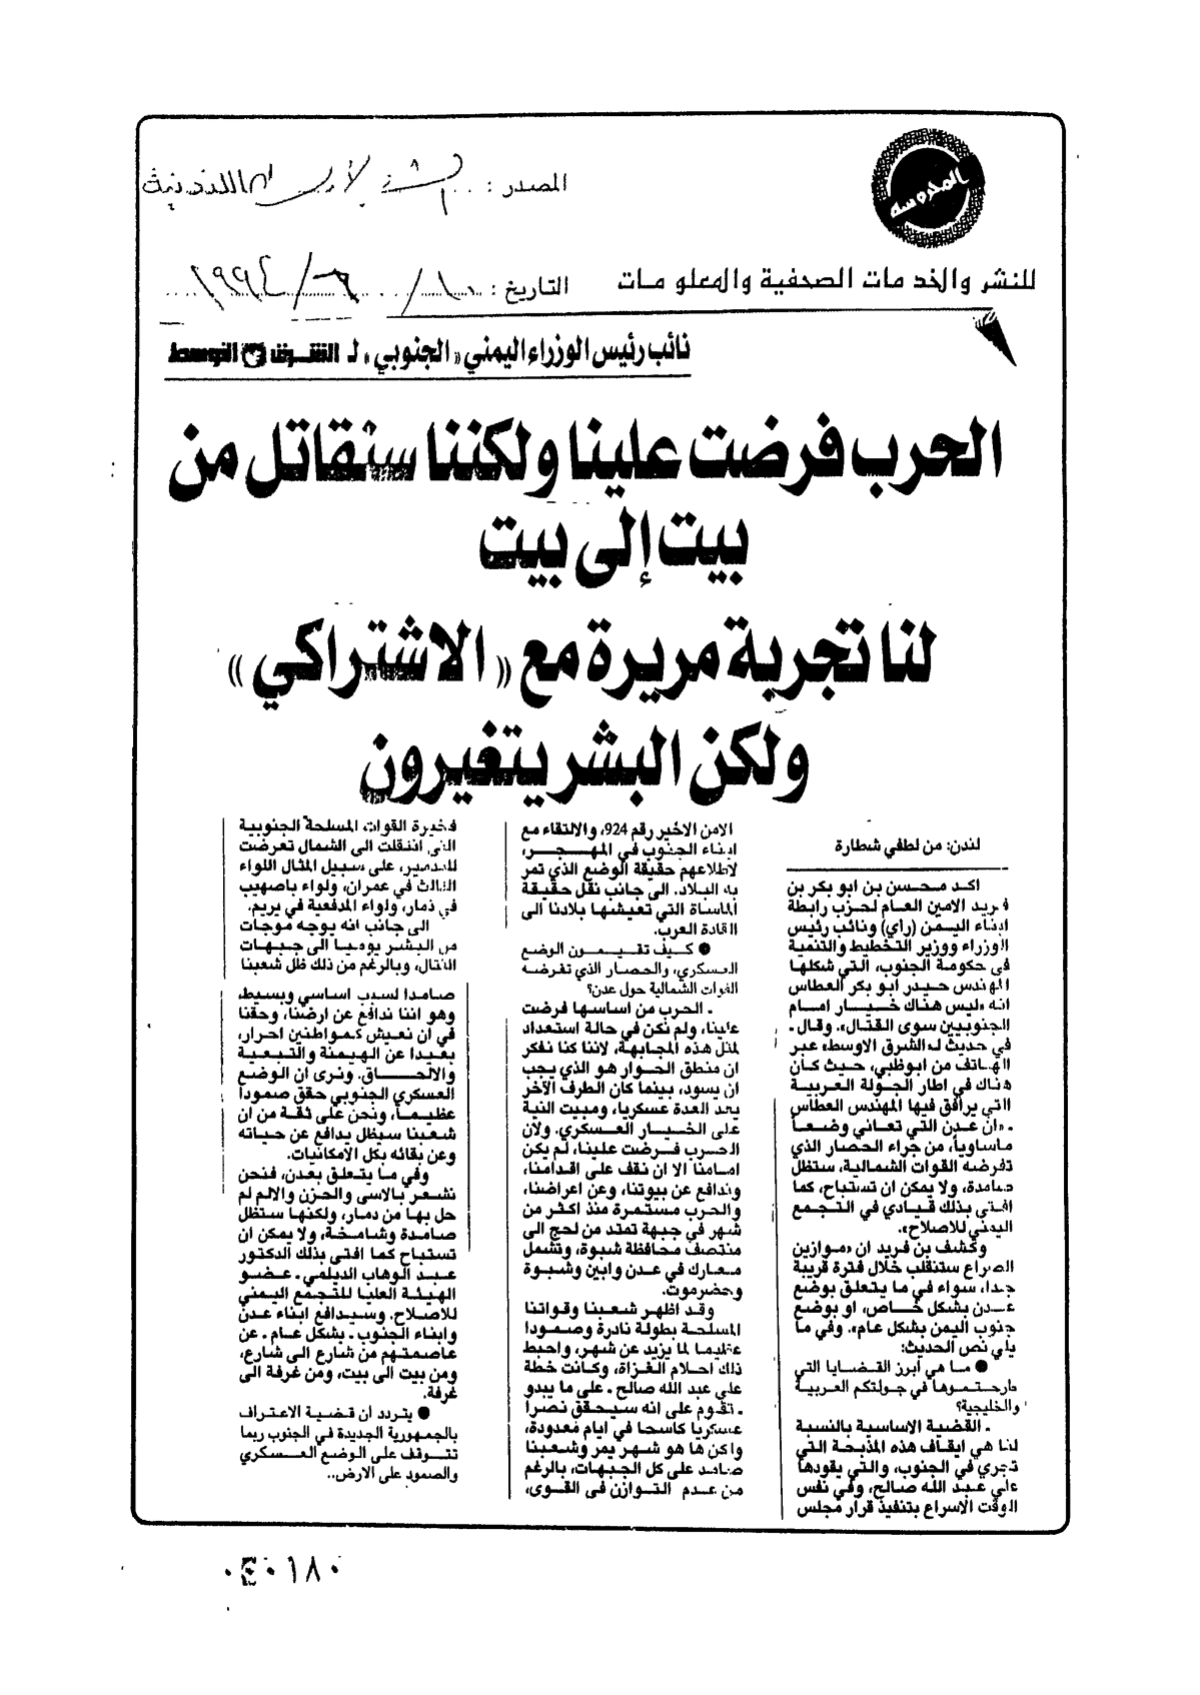 المحروسة
المصدر : الشرق الأوسط اللندنية
للنشر والخدمات الصحفية والمعلومات
التاريخ : ١٠ / ٦ / ١٩٩٤
نائب رئيس الوزراء اليمني «الجنوبي» لـ الشرق الأوسط
الحرب فرضت علينا ولكننا سنقاتل من
بيت إلى بيت
لنا تجربة مريرة مع «الاشتراكي»
ولكن البشر يتغيرون
لندن: من لطفي شطارة
اكد محسن بن ابو بكر بن
فريد الامين العام لحزب رابطة
ابناء اليمن (راي) ونائب رئيس
الوزراء ووزير التخطيط والتنمية
في حكومة الجنوب، التي شكلها
المهندس حيدر ابو بكر العطاس
انه «ليس هناك خيار امام
الجنوبيين سوى القتال». وقال ـ
في حديث لـ«الشرق الاوسط» عبر
الهاتف من ابوظبي، حيث كان
هناك في اطار الجولة العربية
التي يرافق فيها المهندس العطاس
ـ «ان عدن التي تعاني وضعاً
ماساوياً، من جراء الحصار الذي
تفرضه القوات الشمالية، ستظل
صامدة، ولا يمكن ان تستباح، كما
افتى بذلك قيادي في التجمع
اليمني للاصلاح».
وكشف بن فريد ان «موازين
الصراع ستنقلب خلال فترة قريبة
جدا، سواء في ما يتعلق بوضع
عدن بشكل خاص، او بوضع
جنوب اليمن بشكل عام». وفي ما
يلي نص الحديث:
● ما هي أبرز القضايا التي
طرحتموها في جولتكم العربية
والخليجية؟
ـ القضية الاساسية بالنسبة
لنا هي ايقاف هذه المذبحة التي
تجري في الجنوب، والتي يقودها
علي عبد الله صالح، وفي نفس
الوقت الاسراع بتنفيذ قرار مجلس
الامن الاخير رقم 924، والالتقاء مع
ابناء الجنوب في المهجر،
لاطلاعهم حقيقة الوضع الذي تمر
به البلاد. الى جانب نقل حقيقة
الماساة التي تعيشها بلادنا الى
القادة العرب.
● كيف تقيمون الوضع
العسكري، والحصار الذي تفرضه
القوات الشمالية حول عدن؟
ـ الحرب من اساسها فرضت
علينا، ولم نكن في حالة استعداد
لمثل هذه المجابهة، لاننا كنا نفكر
ان منطق الحوار هو الذي يجب
ان يسود، بينما كان الطرف الآخر
يعد العدة عسكريا، ومبيت النية
على الخيار العسكري. ولان
الحرب فرضت علينا، لم يكن
امامنا الا ان نقف على اقدامنا،
وندافع عن بيوتنا، وعن اعراضنا،
والحرب مستمرة منذ اكثر من
شهر في جبهة تمتد من لحج الى
منتصف محافظة شبوة، وتشمل
معارك في عدن وابين وشبوة
وحضرموت.
وقد اظهر شعبنا وقواتنا
المسلحة بطولة نادرة وصمودا
عظيما لما يزيد عن شهر، واحبط
ذلك احلام الغزاة، وكانت خطة
علي عبد الله صالح ـ على ما يبدو
ـ تقوم على انه سيحقق نصرا
عسكريا كاسحا في ايام معدودة،
ولكن ها هو شهر يمر وشعبنا
صامد على كل الجبهات، بالرغم
من عدم التوازن في القوى،
فخيرة القوات المسلحة الجنوبية
التي انتقلت الى الشمال تعرضت
للتدمير، على سبيل المثال اللواء
الثالث في عمران، ولواء باصهيب
في ذمار، ولواء المدفعية في يريم.
الى جانب انه يوجه موجات
من البشر يوميا الى جبهات
القتال، وبالرغم من ذلك ظل شعبنا
صامدا لسبب اساسي وبسيط،
وهو اننا ندافع عن ارضنا، وحقنا
في ان نعيش كمواطنين احرار،
بعيدا عن الهيمنة والتبعية
والالحاق. ونرى ان الوضع
العسكري الجنوبي حقق صمودا
عظيماً، ونحن على ثقة من ان
شعبنا سيظل يدافع عن حياته
وعن بقائه بكل الامكانيات.
وفي ما يتعلق بعدن، فنحن
نشعر بالاسى والحزن والالم لم
حل بها من دمار، ولكنها ستظل
صامدة وشامخة، ولا يمكن ان
تستباح كما افتى بذلك الدكتور
عبد الوهاب الديلمي ـ عضو
الهيئة العليا للتجمع اليمني
للاصلاح. وسيدافع ابناء عدن
وابناء الجنوب ـ بشكل عام ـ عن
عاصمتهم من شارع الى شارع،
ومن بيت الى بيت، ومن غرفة الى
غرفة.
● يتردد ان قضية الاعتراف
بالجمهورية الجديدة في الجنوب ربما
تتوقف على الوضع العسكري
والصمود على الارض..